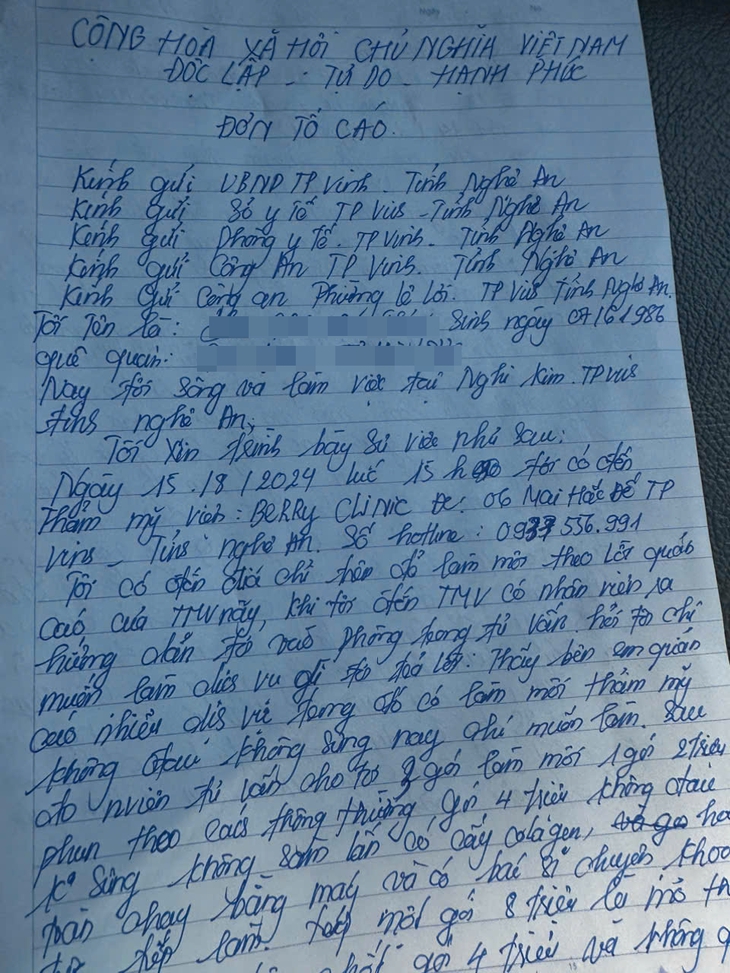 CỘNG HOÀ XÃ HỘI CHỦ NGHĨA VIỆT NAM
ĐỘC LẬP - TỰ DO - HẠNH PHÚC
ĐƠN TỐ CÁO.
Kính gửi UBND TP Vinh - Tỉnh Nghệ An
Kính gửi Sở y tế TP Vinh - Tỉnh Nghệ An
Kính gửi phòng y tế. TP Vinh. Tỉnh Nghệ An
Kính gửi Công An TP Vinh. Tỉnh Nghệ An
Kính gửi Công an Phường lê lợi. TP Vinh Tỉnh Nghệ An.
Tôi Tên là: Sinh ngày 07/6/1986
quê quán:
Nay tôi sống và làm việc tại Nghi Kim. TP Vinh
tỉnh nghệ An,
Tôi Xin trình bày sự việc như sau:
Ngày 15/8/2024 lúc 15h tôi có đến
Thẩm mỹ viện: BERRY CLINIC Đc: 06 Mai Hắc Đế TP
Vinh - Tỉnh nghệ An. Số hotline: 0937 556.991
Tôi có đến địa chỉ trên để làm môi theo lời quảng
cáo của TMV này, khi tôi đến TMV có nhân viên ra
hướng dẫn tôi vào phòng trong tư vấn. hỏi tôi chị
muốn làm dịch vụ gì tôi trả lời: Thấy bên em quảng
cáo nhiều dịch vụ trong đó có làm môi thẩm mỹ
không đau không sưng nay chị muốn làm. sau
đó nviên tư vấn cho tôi 3 gói làm môi 1 gói 2 triệu
phun theo cách thông thường, gói 4 triệu không đau
ko sưng không sần lần có cấy colagen, hoàn
toàn chạy bằng máy và có bác sĩ chuyên khoa
làm. tiếp một gói 8 triệu là
gói 4 triệu và không